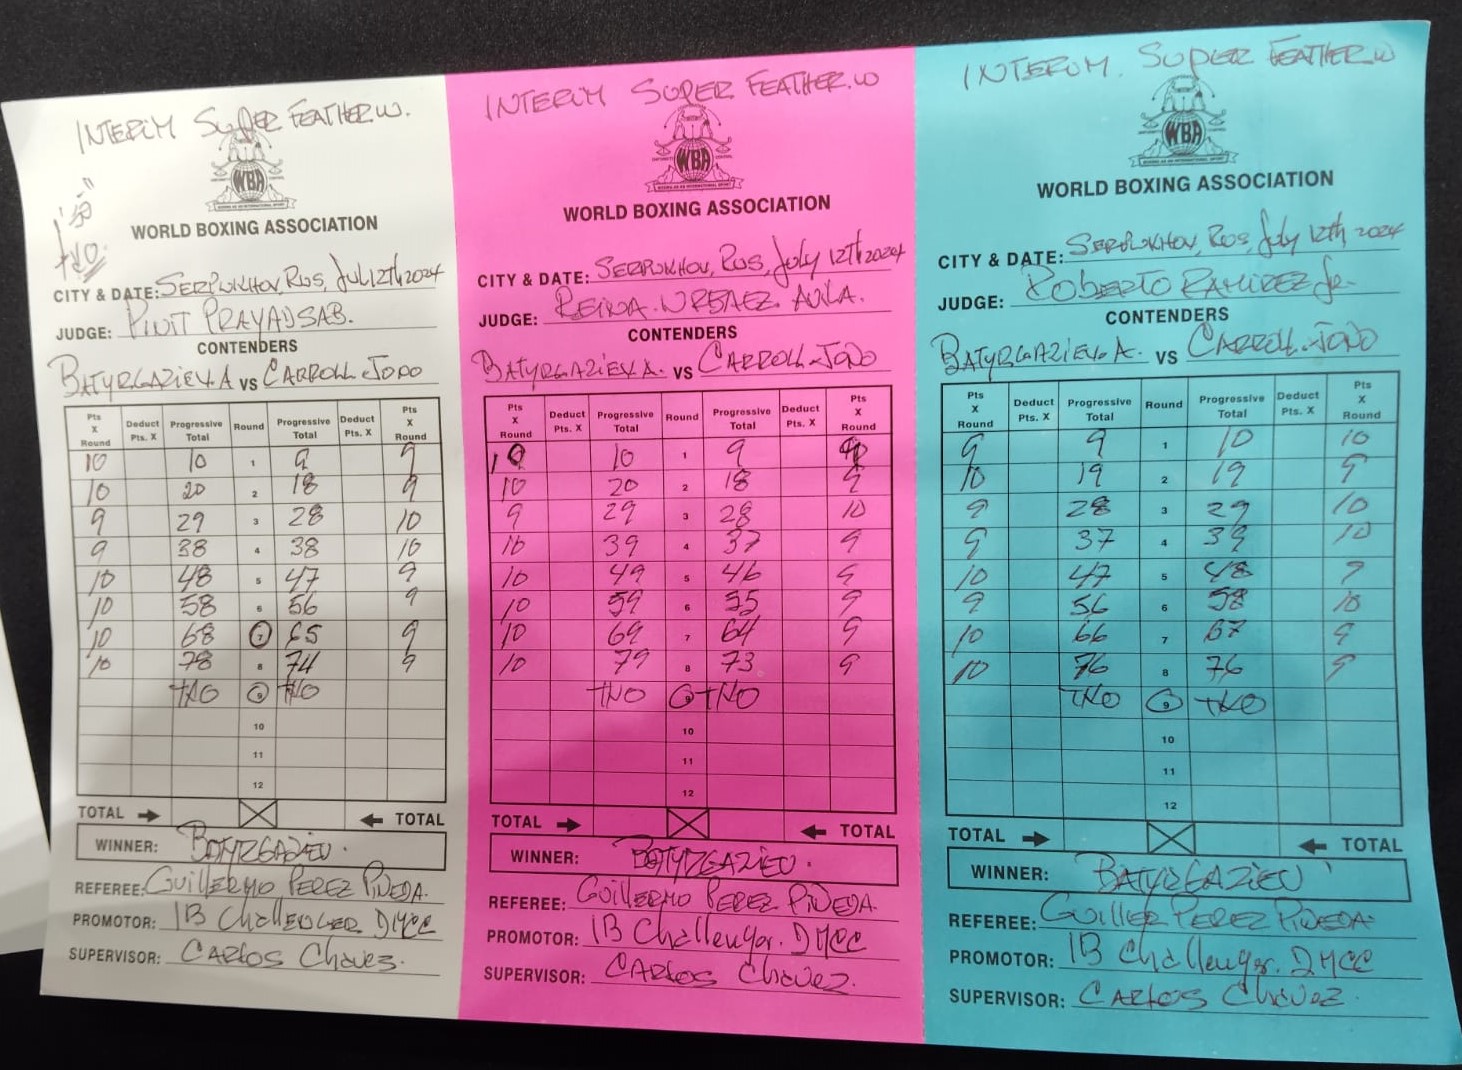 INTERIM SUPER FEATHER W.
WBA
WORLD BOXING ASSOCIATION
"9"
TKO.
CITY & DATE: SERPUKHOV, RUS, JUL 12TH 2024
JUDGE: PINIT PRAYADSAB.
CONTENDERS
BATYRGAZIEV. A VS CARROLL - JONO
Pts X Round Deduct Pts. X Progressive Total Round Progressive Total Deduct Pts. X Pts X Round
10 10 1 9 9
10 20 2 18 9
9 29 3 28 10
9 38 4 38 10
10 48 5 47 9
10 58 6 56 9
10 68 7 65 9
10 78 8 74 9
TKO 9 TKO
10
11
12
TOTAL TOTAL
WINNER: BATYRGAZIEV.
REFEREE: GUILLERMO PEREZ PINEDA.
PROMOTOR: IB Challenger DMCC
SUPERVISOR: CARLOS Chavez.
INTERIM SUPER FEATHER.W
WBA
WORLD BOXING ASSOCIATION
CITY & DATE: SERPUKHOV, RUS, July 12TH 2024
JUDGE: REINA. URBAEZ. AVILA.
CONTENDERS
BATYRGAZIEV A. VS CARROLL - JONO
Pts X Round Deduct Pts. X Progressive Total Round Progressive Total Deduct Pts. X Pts X Round
10 10 1 9 9
10 20 2 18 9
9 29 3 28 10
10 39 4 37 9
10 49 5 46 9
10 59 6 55 9
10 69 7 64 9
10 79 8 73 9
TKO 9 TKO
10
11
12
TOTAL TOTAL
WINNER: BATYRGAZIEV.
REFEREE: GUILLERMO PEREZ PINEDA.
PROMOTOR: IB Challenger. DMCC
SUPERVISOR: CARLOS Chavez.
INTERIM. SUPER FEATHER W
WBA
WORLD BOXING ASSOCIATION
CITY & DATE: SERPUKHOV, RUS, July 12TH 2024
JUDGE: ROBERTO RAMIREZ Jr.
CONTENDERS
BATYRGAZIEV. A. VS CARROLL - JONO
Pts X Round Deduct Pts. X Progressive Total Round Progressive Total Deduct Pts. X Pts X Round
9 9 1 10 10
10 19 2 19 9
9 28 3 29 10
9 37 4 39 10
10 47 5 48 9
9 56 6 58 10
10 66 7 67 9
10 76 8 76 9
TKO 9 TKO
10
11
12
TOTAL TOTAL
WINNER: BATYRGAZIEV
REFEREE: GUILLER PEREZ PINEDA
PROMOTOR: IB Challenger. DMCC
SUPERVISOR: CARLOS Chavez.